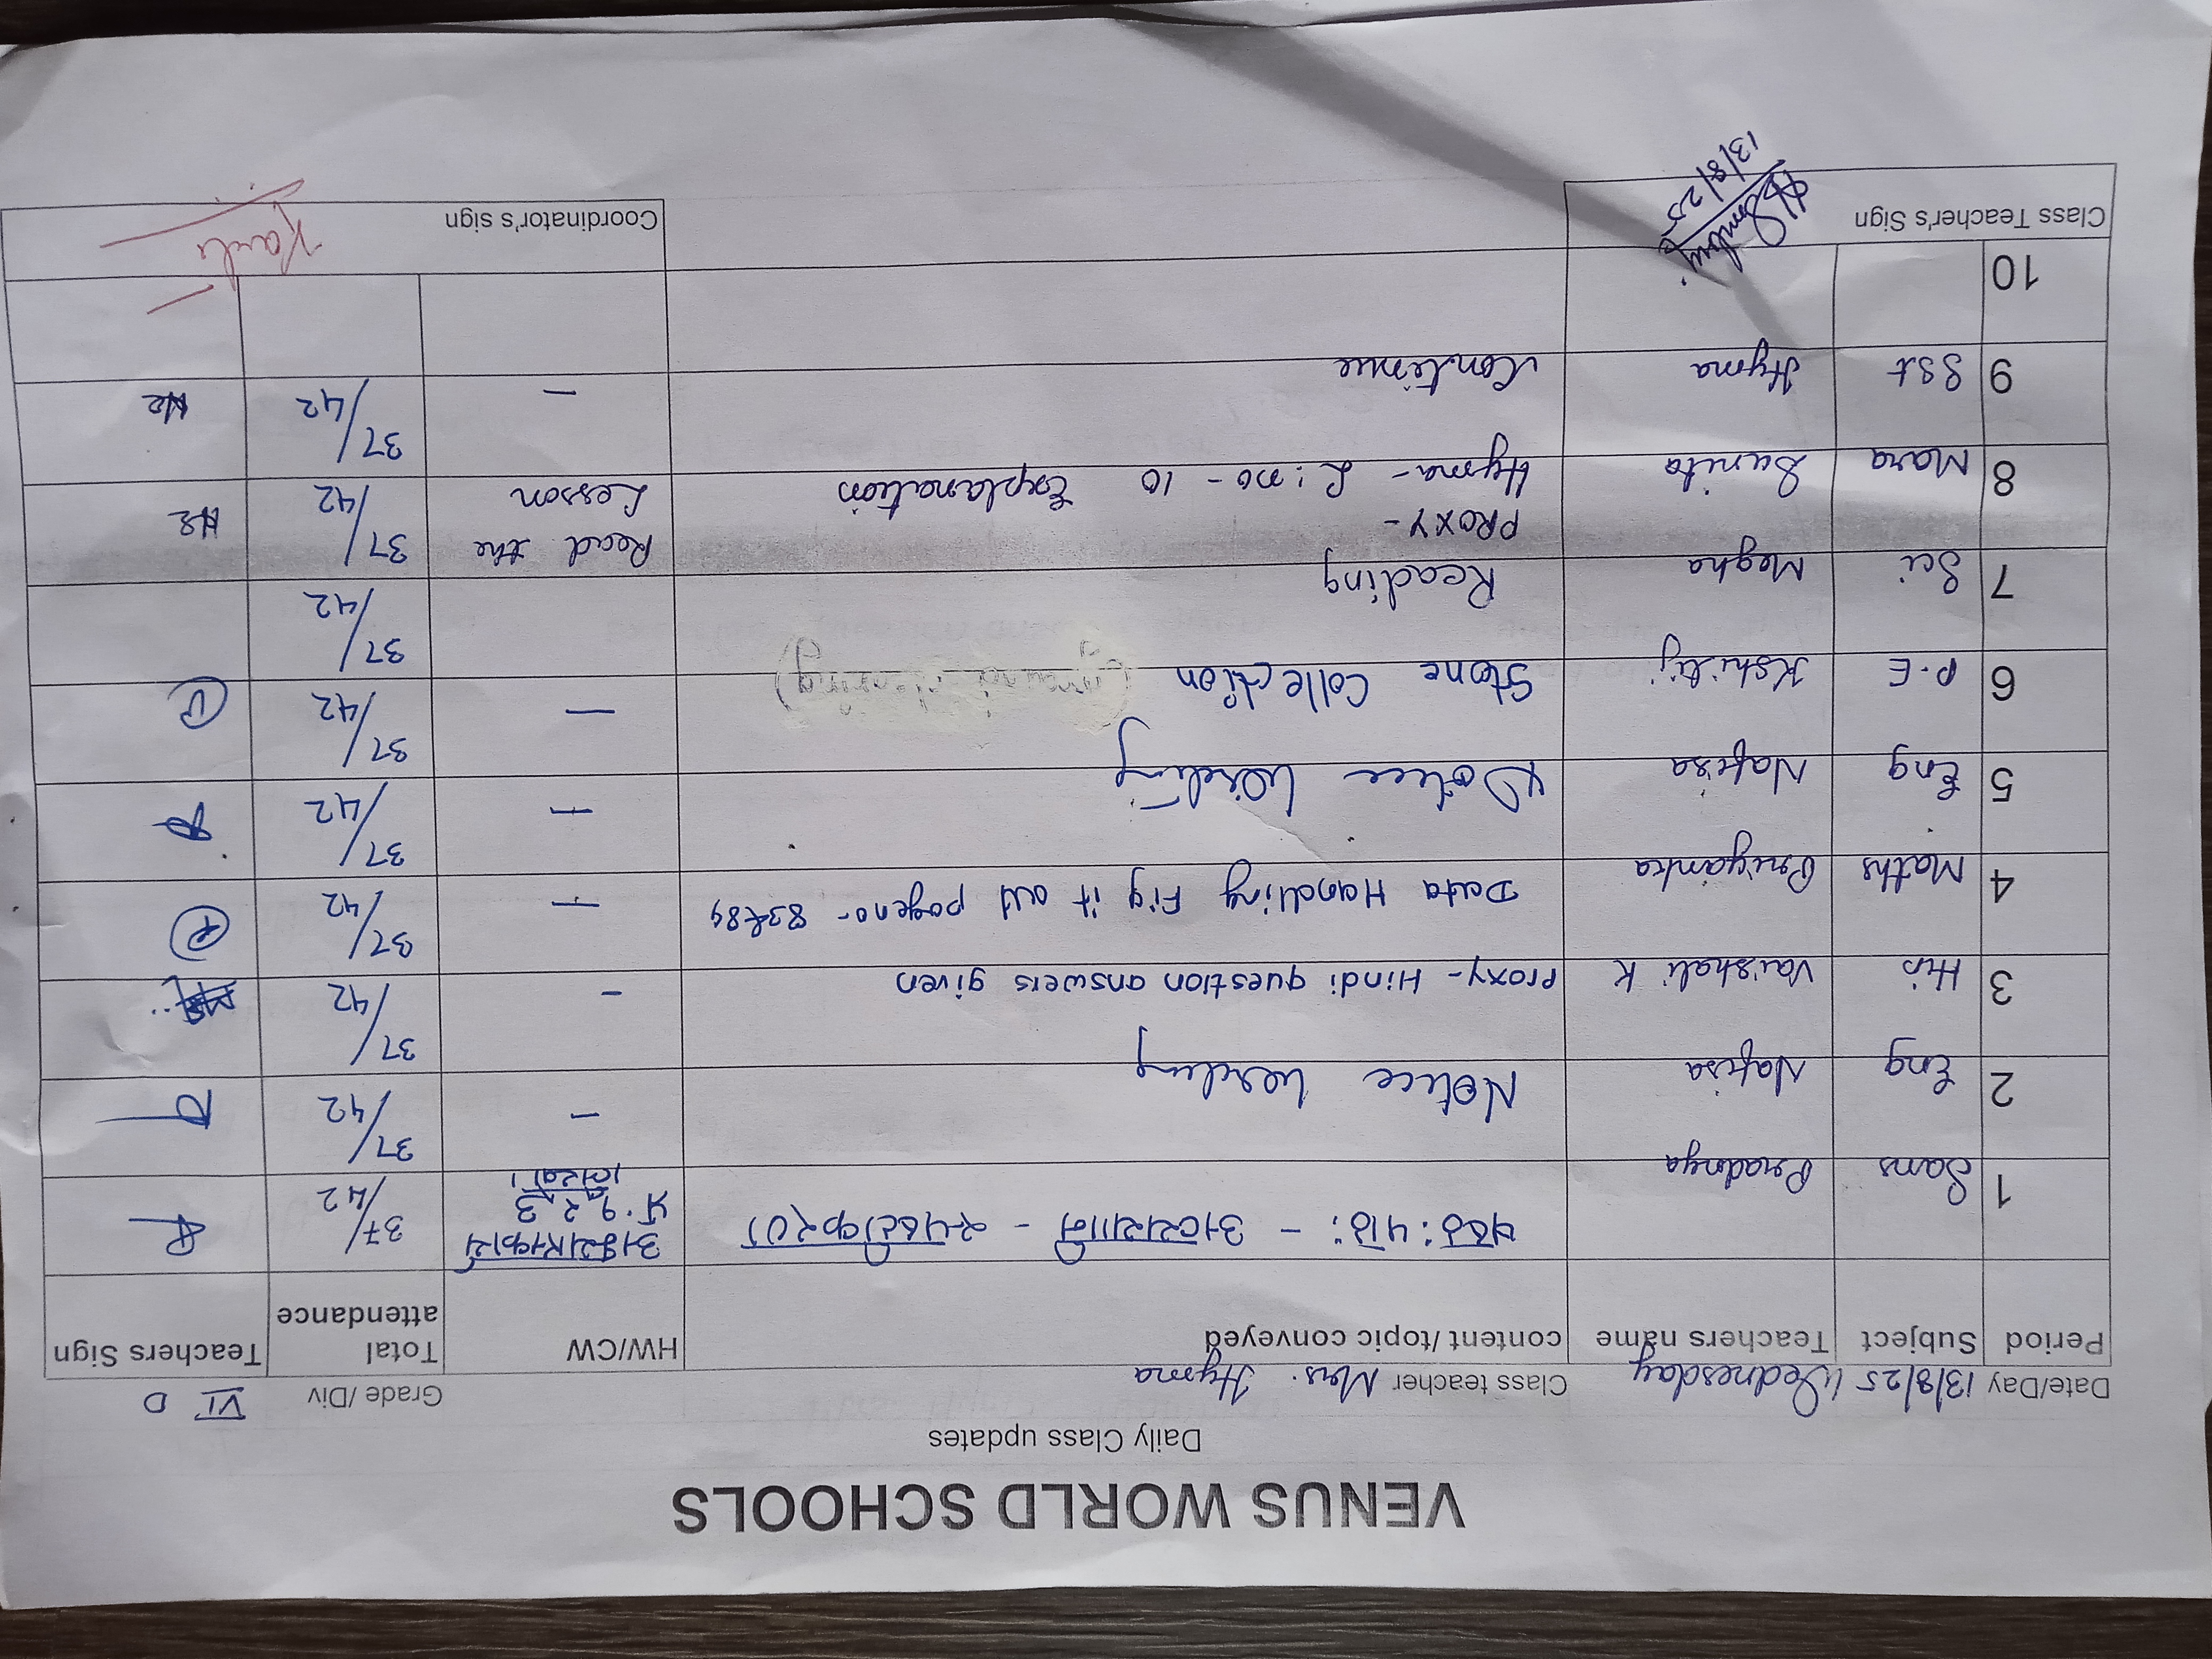 VENUS WORLD SCHOOLS
Daily Class updates
Date/Day 13/8/25 Wednesday Class teacher Mrs. Hyma Grade/Div VI D
Period Subject Teachers name content/topic conveyed HW/CW Total attendance Teachers Sign
1 Sans Pradnya षष्ठः पाठः - स्पष्टीकरणं प्र. १, २, ३ 37/42
2 Eng Nafisa Notice Writing - 37/42
3 His Vaishali K Proxy - Hindi question answers given - 37/42
4 Maths Priyanka Data Handling Fig it out pageno- 83&84 — 37/42
5 Eng Nafisa Notice Writing — 37/42
6 P.E Kshitij Stone Collection — 37/42
7 Sci Megha Reading 37/42
8 Mara Sunita PROXY-
Hyma - L: no - 10 Explanation Read the Lesson 37/42
9 SSt Hyma Continue - 37/42
10
Class Teacher's Sign 13/8/25 Coordinator's sign